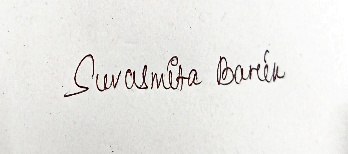 Suvasmita Barik